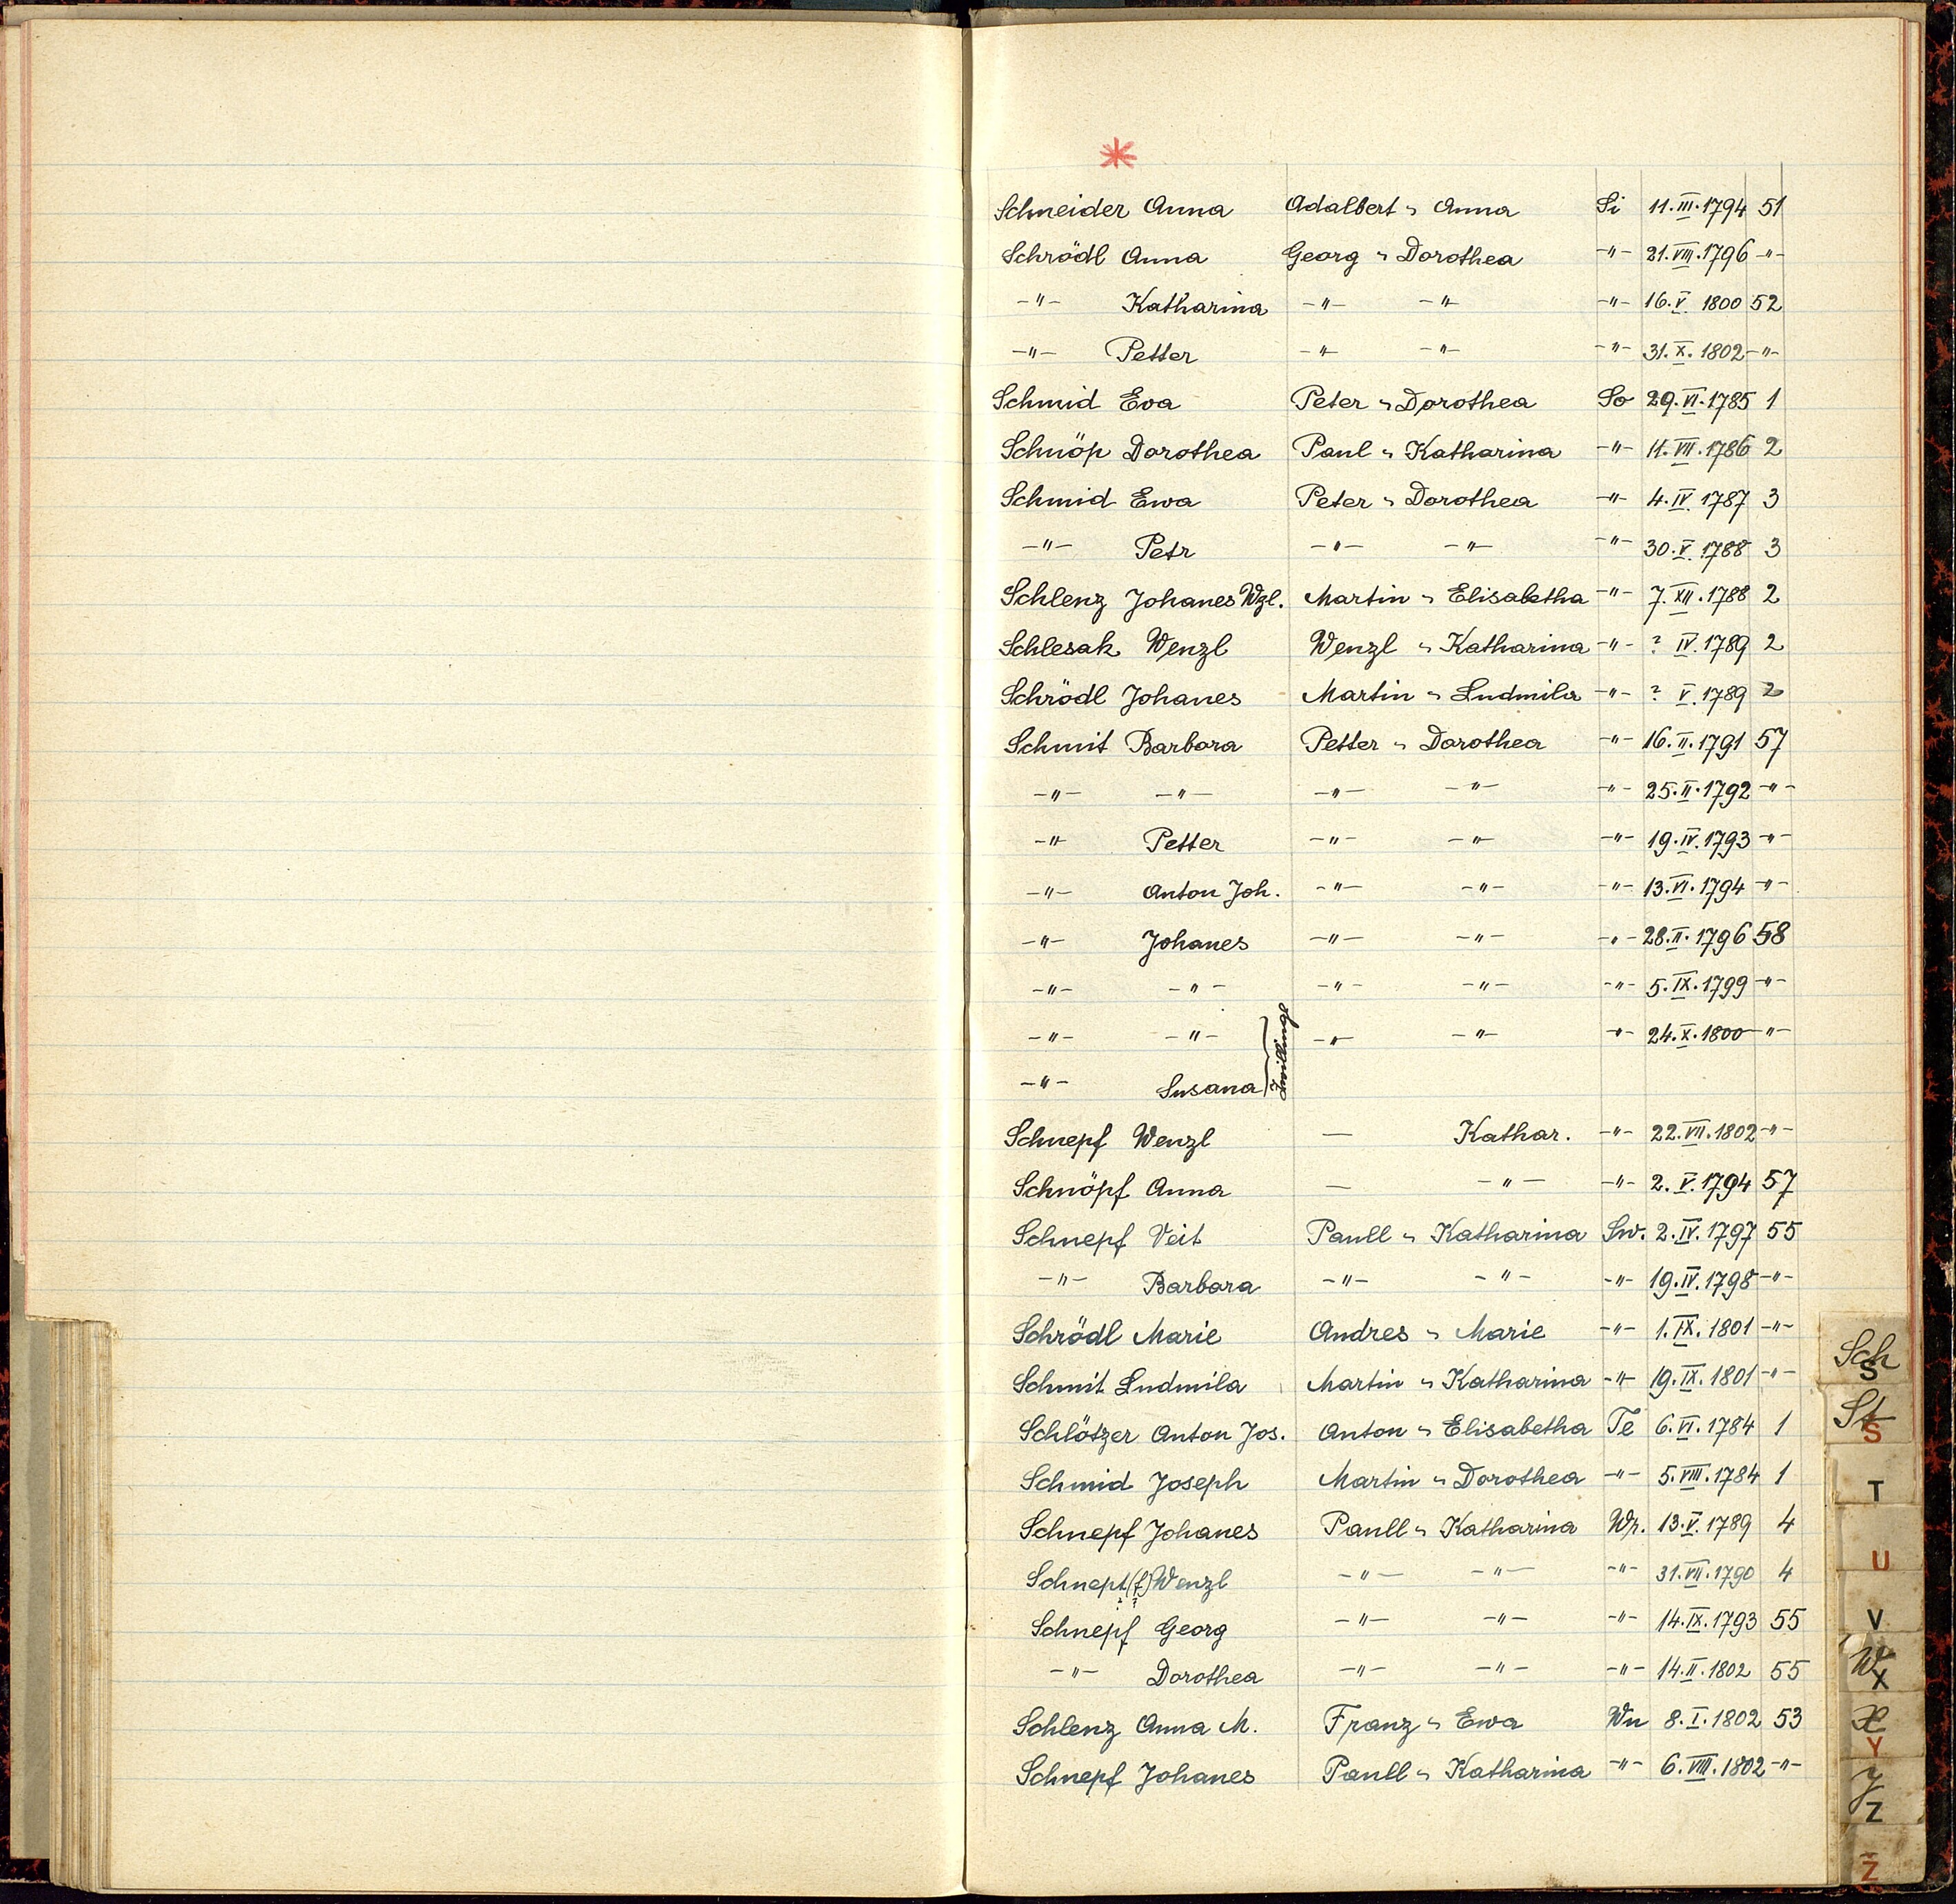 *
Schneider Anna Adalbert u Anna Si 11.III.1794 51
Schrödl Anna Georg u Dorothea -"- 21.VIII.1796 -"-
-"- Katharina -"- -"- -"- 16.V.1800 52
-"- Petter -"- -"- -"- 31.X.1802 -"-
Schmid Eva Peter u Dorothea So 29.VI.1785 1
Schnöp Dorothea Paul u Katharina -"- 11.VII.1786 2
Schmid Ewa Peter u Dorothea -"- 4.IV.1787 3
-"- Petr -"- -"- -"- 30.V.1788 3
Schlenz Johanes Wzl. Martin u Elisabetha -"- 7.XII.1788 2
Schlesak Wenzl Wenzl u Katharina -"- ? IV.1789 2
Schrödl Johanes Martin u Ludmila -"- ? V.1789 2
Schmit Barbora Petter u Dorothea -"- 16.II.1791 57
-"- -"- -"- -"- -"- 25.II.1792 -"-
-"- Petter -"- -"- -"- 19.IV.1793 -"-
-"- Anton Joh. -"- -"- -"- 13.VI.1794 -"-
-"- Johanes -"- -"- -"- 28.II.1796 58
-"- -"- -"- -"- -"- 5.IX.1799 -"-
-"- -"- -"- -"- -"- 24.X.1800 -"-
-"- Susana
Schnepf Wenzl — Kathar. -"- 22.VII.1802 -"-
Schnöpf Anna — -"- -"- 2.V.1794 57
Schnepf Veit Paull u Katharina Sw. 2.IV.1797 55
-"- Barbara -"- -"- -"- 19.IV.1798 -"-
Schrödl Marie Andres u Marie -"- 1.IX.1801 -"-
Schmit Ludmila Martin u Katharina -"- 19.IX.1801 -"-
Schlötzer Anton Jos. Anton u Elisabetha Te 6.VI.1784 1
Schmid Joseph Martin u Dorothea -"- 5.VIII.1784 1
Schnepf Johanes Paull u Katharina Wr. 13.V.1789 4
Schnept(f) Wenzl -"- -"- -"- 31.VII.1790 4
Schnepf Georg -"- -"- -"- 14.IX.1793 55
-"- Dorothea -"- -"- -"- 14.II.1802 55
Schlenz Anna M. Franz u Ewa Wn 8.I.1802 53
Schnepf Johanes Paull u Katharina -"- 6.VIII.1802 -"-
Sch S
St S
T
U
V
W X
X Y
Y Z
Z